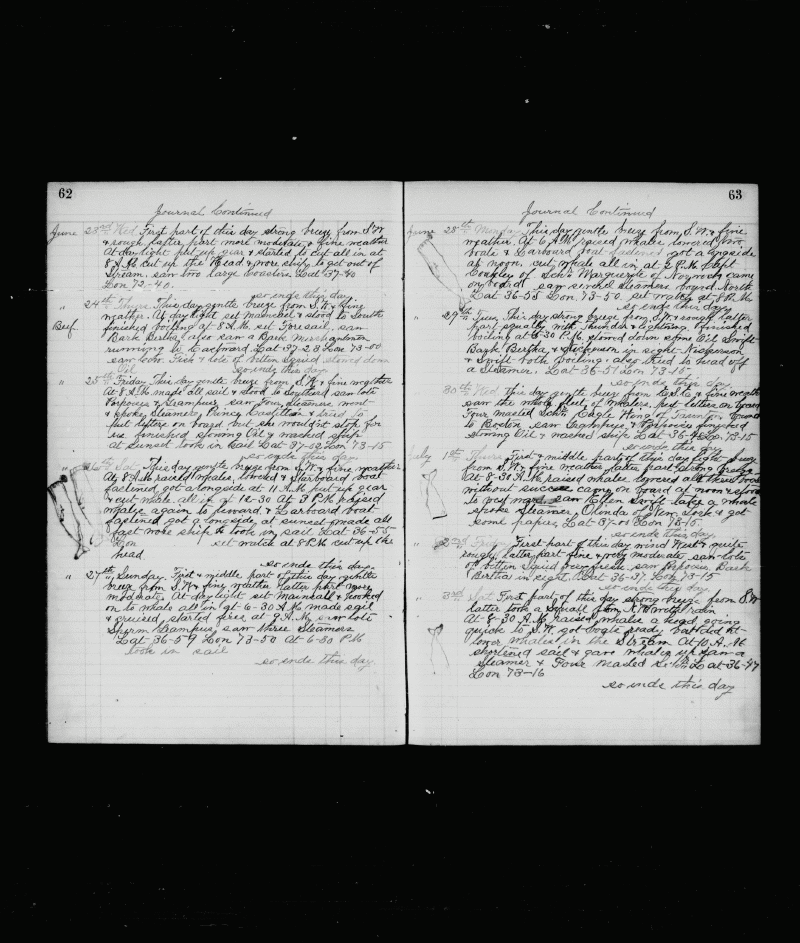 62
Journal Continued
June 23rd Wed First part of this day strong breeze from S.W
& rough latter part more moderate & fine weather
At daylight put up gear & started to cut all in at
8 A.M. cut up the Head & wore ship to get out of
Stream. saw two large Coasters Lat 37-40
Lon 72-40.
so ends this day
" 24th Thurs This day gentle breeze from S.W. & fine
weather. At daylight set Mainsail & stood to South
finished boiling at 8 A.M. set Foresail, saw
Bark Bertha also saw a Bark Merchantman
running to Eastward. Lat 37-23 Lon 73-00
saw some Fish & lots of bitten Squid stowed down
Oil so ends this day
" 25th Friday This day gentle breeze from S.W. & fine weather
At 8 A.M. made all sail & stood to Southerd saw lots
Porpoises & Grampus, saw Four Steamers went
& spoke Steamer, Prince & tried to
put letters on board but she wouldn't stop for
us. finished stowing Oil & washed ship
at sunset took in sail Lat 37-52 Lon 73-15
so ends this day
" 26th Sat. This day gentle breeze from S.W. & fine weather
At 8 A.M. raised whales, lowered & Starboard boat
fastened got alongside at 11 A.M. put up gear
& cut whale all in at 12-30 At 3 P.M. raised
whales again to leeward. & Larboard boat
fastened got alongside, at sunset made all
fast wore ship & took in sail Lat 36-55
Lon set watch at 8 P.M. cut up the
head
so ends this day.
" 27th, Sunday. First & middle part of this day gentle
breeze from S.W. & fine weather latter part more
moderate. At daylight set Mainsail & hooked
on to whale all in at 6-30 A.M. made sail
& cruised, started fires at 9 A.M. saw lots
Sperm Grampus, saw three Steamers
Lat 36-59 Lon 73-50 At 6-30 P.M
took in sail
so ends this day
63
Journal Continued
June 28th Monday This day gentle breeze from S.W. & fine
weather. At 6 A.M. raised whales lowered two
boats & Larboard boat fastened got alongside
at noon. cut whale all in, at 2 P.M. Capt
of Schr Marguerite of came
on board saw several steamers bound North
Lat 36-55 Lon 73-50. set watch at 8 P.M.
so ends this day
" 29th Tues, This day strong breeze from S.W. & rough latter
part squally with Thunder & lightning. finished
boiling at 6-30 P.M. stowed down some Oil Swift
Bark Bertha & Nickerson in sight Nickerson
& Swift both boiling. also tried to head off
a Steamer. Lat 36-57 Lon 73-15
so ends this day
30th Wed This day gentle breeze from & fine weather
saw the whole fleet of whalers. put letters on board
Four masted Schr. Eagle Wing of Taunton. Bound
to Boston saw Grampus, & Porpoises finished
stowing Oil & washed ship Lat 36-45 Lon 73-15
so ends this day
July 1st Thurs First & middle part of this day light breeze
from S.W. & fine weather latter part strong breeze
At 8-30 A.M. raised whales lowered all three boats
without success came on board at noon & stood
to Westward saw Ellen Swift take a whale
spoke Steamer, Olinda of New York & got
some papers, Lat 37-01 Lon 73-15.
so ends this day
" 2nd Friday First part of this day wind West & quite
rough, latter part fine & very moderate saw lots
of bitten Squid very fresh saw Porpoises Bark
Bertha in sight. Lat 36-37 Lon 73-15
so ends this day
" 3rd Sat First part of this day strong breeze from S.W
latter took a squall from N.W with rain
At 8-30 A.M. raised whales a head going
quick to S.W. got boats ready but did not
lower whales in the Stream. At 10 A.M
shortened sail & gave whales up saw a
Steamer & Four Masted Schr. Lat 36-47
Lon 73-16
so ends this day